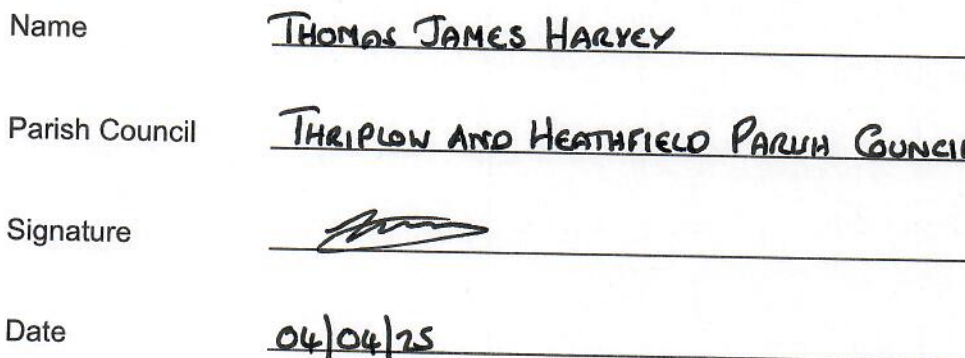 Name THOMAS JAMES HARVEY
Parish Council THRIPLOW AND HEATHFIELD PARISH COUNCIL
Signature
Date 04/04/25